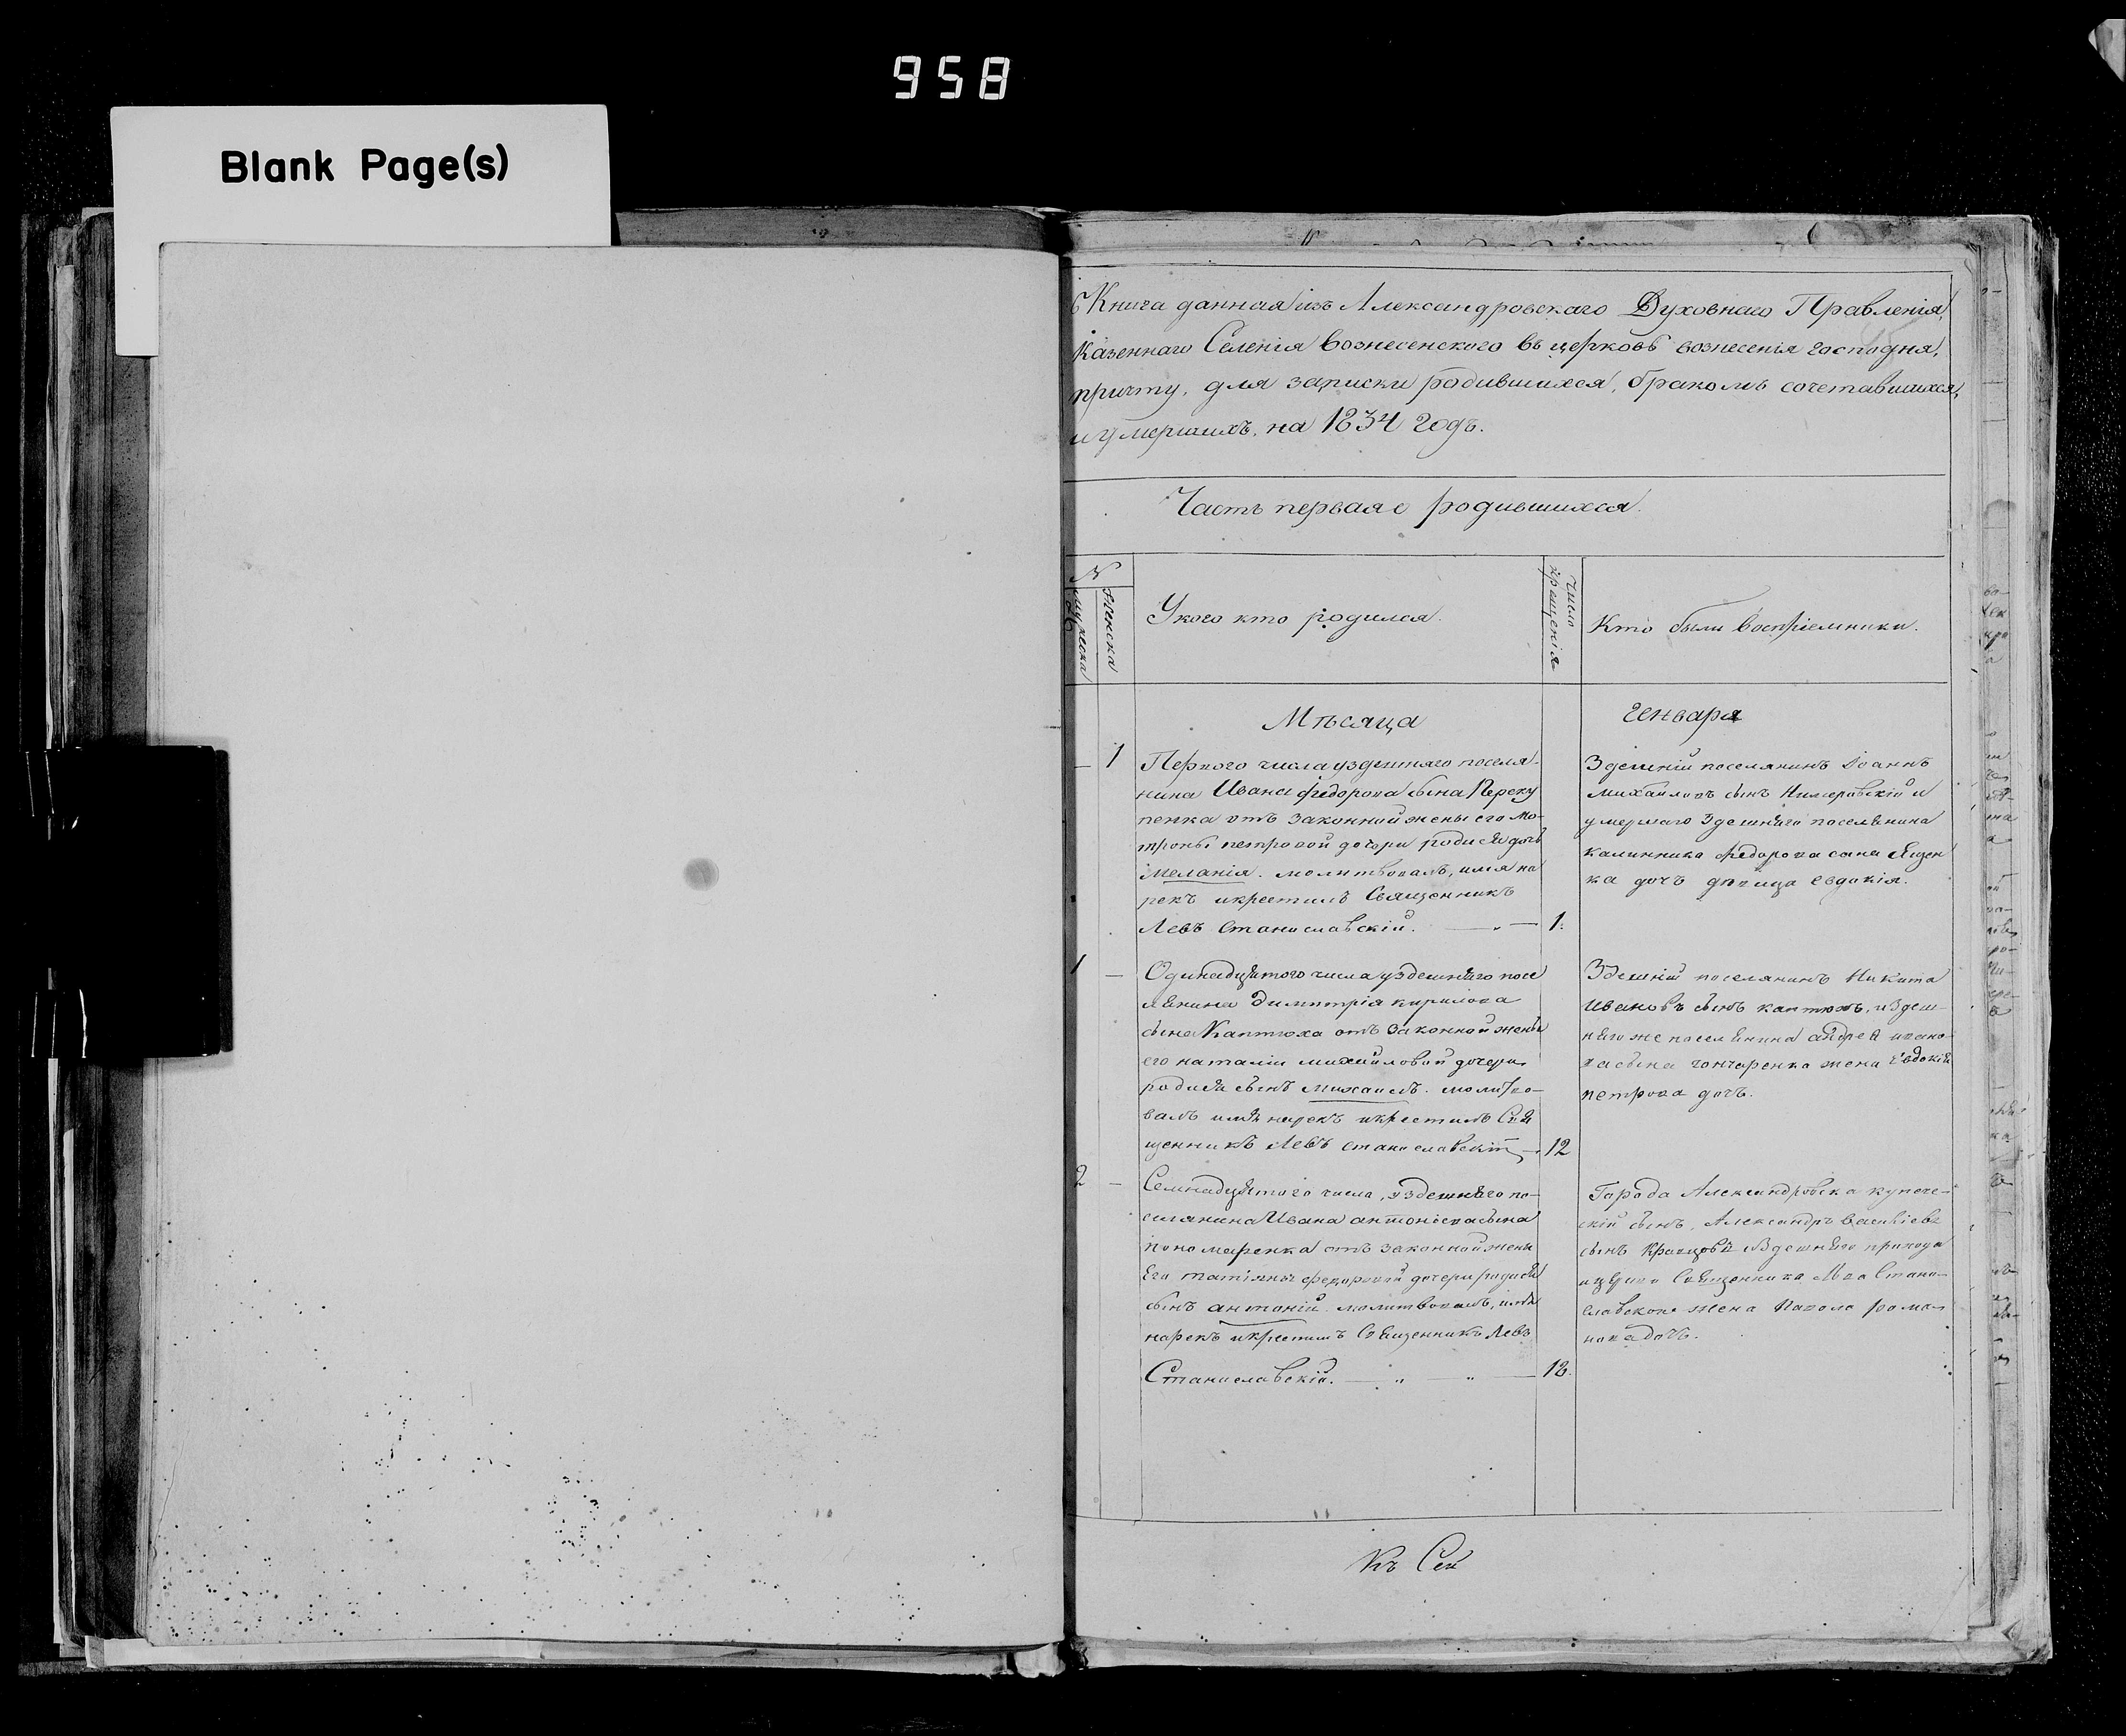 958
Blank Page(s)
Книга данная изъ Александровскаго Духовнаго Правленія,
Казеннаго Селенія Вознесенского въ церковь вознесенія господня,
причту, для записки родившихся, бракомъ сочетавшихся,
и умершихъ, на 1834 годъ.
Часть первая о родившихся.
№
мужеска
женска
У кого кто родился.
Число крещенія
Кто были Воспріемники.
Мѣсяца
Генваря
1
Первого числа уздешняго поселя-
нина Ивана федорова сына Переку
пенка отъ законной жены его Мо-
троны петровой дочери родися дочь
Меланія. молитвовалъ, имя на
рекъ икрестилъ Священникъ
Левъ Станиславскій.
1.
Здешній поселянинъ Іоаннъ
Михайловъ сынъ и
умершаго Здешняго поселянина
калинника федорова сына
ка дочъ девица евдокія.
1
Одинадцятого числа уздешняго посе
лянина Димитрія кирилова
сына Каптюха отъ законной жены
его наталіи михайловой дочери
родися сынъ михаилъ. молитво-
валъ имя нарекъ икрестилъ Свя
щенникъ Левъ станиславскій
12
Здешній поселянинъ Никита
Ивановъ сынъ каптюхъ, издеш-
няго же поселянина андрея ивано-
ва сына гончаренка жена Евдокія
петрова дочъ.
2
Семнадцятого числа, уздешняго по-
селянина Ивана антоніева сына
пономаренка отъ законной жены
Его татіяны федоровой дочери родися
сынъ антоній. молитвовалъ, имя
нарекъ икрестилъ Священникъ Левъ
Станиславскій.
18.
Города Александровска купече-
скій сынъ, Александръ василіевъ
сынъ Кравцовъ издешняго прихода
Священника Льва Стани-
славского жена рома-
нова дочъ.
Къ Сей